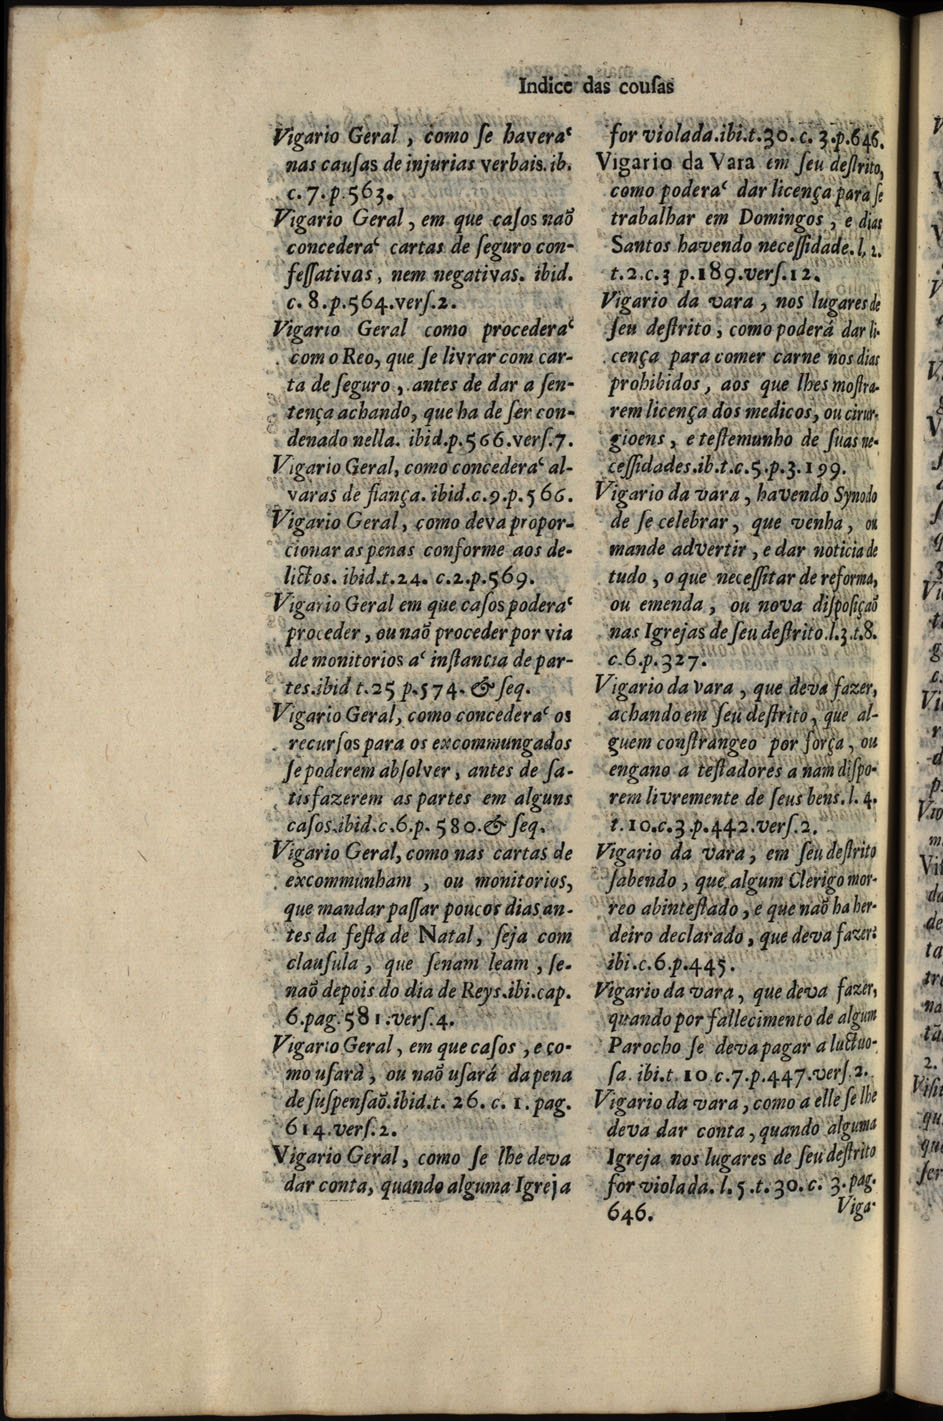 Indice das couſas
Vigario Geral , como ſe havera‘
nas cauſas de injurias verbais. ib.
c. 7. p. 563.
Vigario Geral , em que caſos naõ
concedera‘ cartas de ſeguro con-
feſſativas , nem negativas. ibid.
c. 8. p. 564. verſ. 2.
Vigario Geral como procedera‘
com o Reo, que ſe livrar com car-
ta de ſeguro , antes de dar a ſen-
tença achando, que ha de ſer con-
denado nella. ibid. p. 566. verſ. 7.
Vigario Geral, como concedera‘ al-
varas de fiança. ibid. c. 9. p. 566.
Vigario Geral , como deva propor-
cionar as penas conforme aos de-
lictos. ibid. t. 24. c. 2. p. 569.
Vigario Geral em que caſos podera‘
proceder , ou naõ proceder por via
de monitorios a‘ inſtancia de par-
tes. ibid t. 25 p. 574. & ſeq.
Vigario Geral, como concedera‘ os
recurſos para os excommungados
ſe poderem abſolver , antes de ſa-
tisfazerem as partes em alguns
caſos. ibid. c. 6. p. 580. & ſeq.
Vigario Geral, como nas cartas de
excommunham , ou monitorios,
que mandar paſſar poucos dias an-
tes da feſta de Natal, ſeja com
clauſula , que ſenam leam , ſe-
naõ depois do dia de Reys. ibi. cap.
6. pag. 581. verſ. 4.
Vigario Geral , em que caſos , e co-
mo uſarà , ou naõ uſará da pena
de ſuſpenſaõ. ibid. t. 26. c. 1. pag.
614. verſ. 2.
Vigario Geral , como ſe lhe deva
dar conta, quando alguma Igreja
for violada. ibi. t. 30. c. 3. p. 646.
Vigario da Vara em ſeu deſtrito,
como podera‘ dar licença para ſe
trabalhar em Domingos , e dias
Santos havendo neceſſidade. l. 2.
t. 2. c. 3 p. 189. verſ. 12.
Vigario da vara , nos lugares de
ſeu deſtrito , como poderá dar li-
cença para comer carne nos dias
prohibidos , aos que lhes moſtra-
rem licença dos medicos, ou cirur-
gioens , e teſtemunho de ſuas ne-
ceſſidades. ib. t. c. 5. p. 3. 199.
Vigario da vara , havendo Synodo
de ſe celebrar , que venha , ou
mande advertir , e dar noticia de
tudo , o que neceſſitar de reforma,
ou emenda , ou nova diſpoſiçaõ
nas Igrejas de ſeu deſtrito. l. 3. t. 8.
c. 6. p. 327.
Vigario da vara , que deva fazer,
achando em ſeu deſtrito , que al-
guem conſtrangeo por força , ou
engano a teſtadores a nam diſpo-
rem livremente de ſeus bens. l. 4.
t. 10. c. 3. p. 442. verſ. 2.
Vigario da vara , em ſeu deſtrito
ſabendo , que algum Clerigo mor-
reo abinteſtado , e que naõ ha her-
deiro declarado , que deva fazer:
ibi. c. 6. p. 445.
Vigario da vara , que deva fazer,
quando por fallecimento de algum
Parocho ſe deva pagar a luctuo-
ſa. ibi. t. 10 c. 7. p. 447. verſ. 2.
Vigario da vara , como a elle ſe lhe
deva dar conta , quando alguma
Igreja nos lugares de ſeu deſtrito
for violada. l. 5. t. 30. c. 3. pag.
646.
Viga-